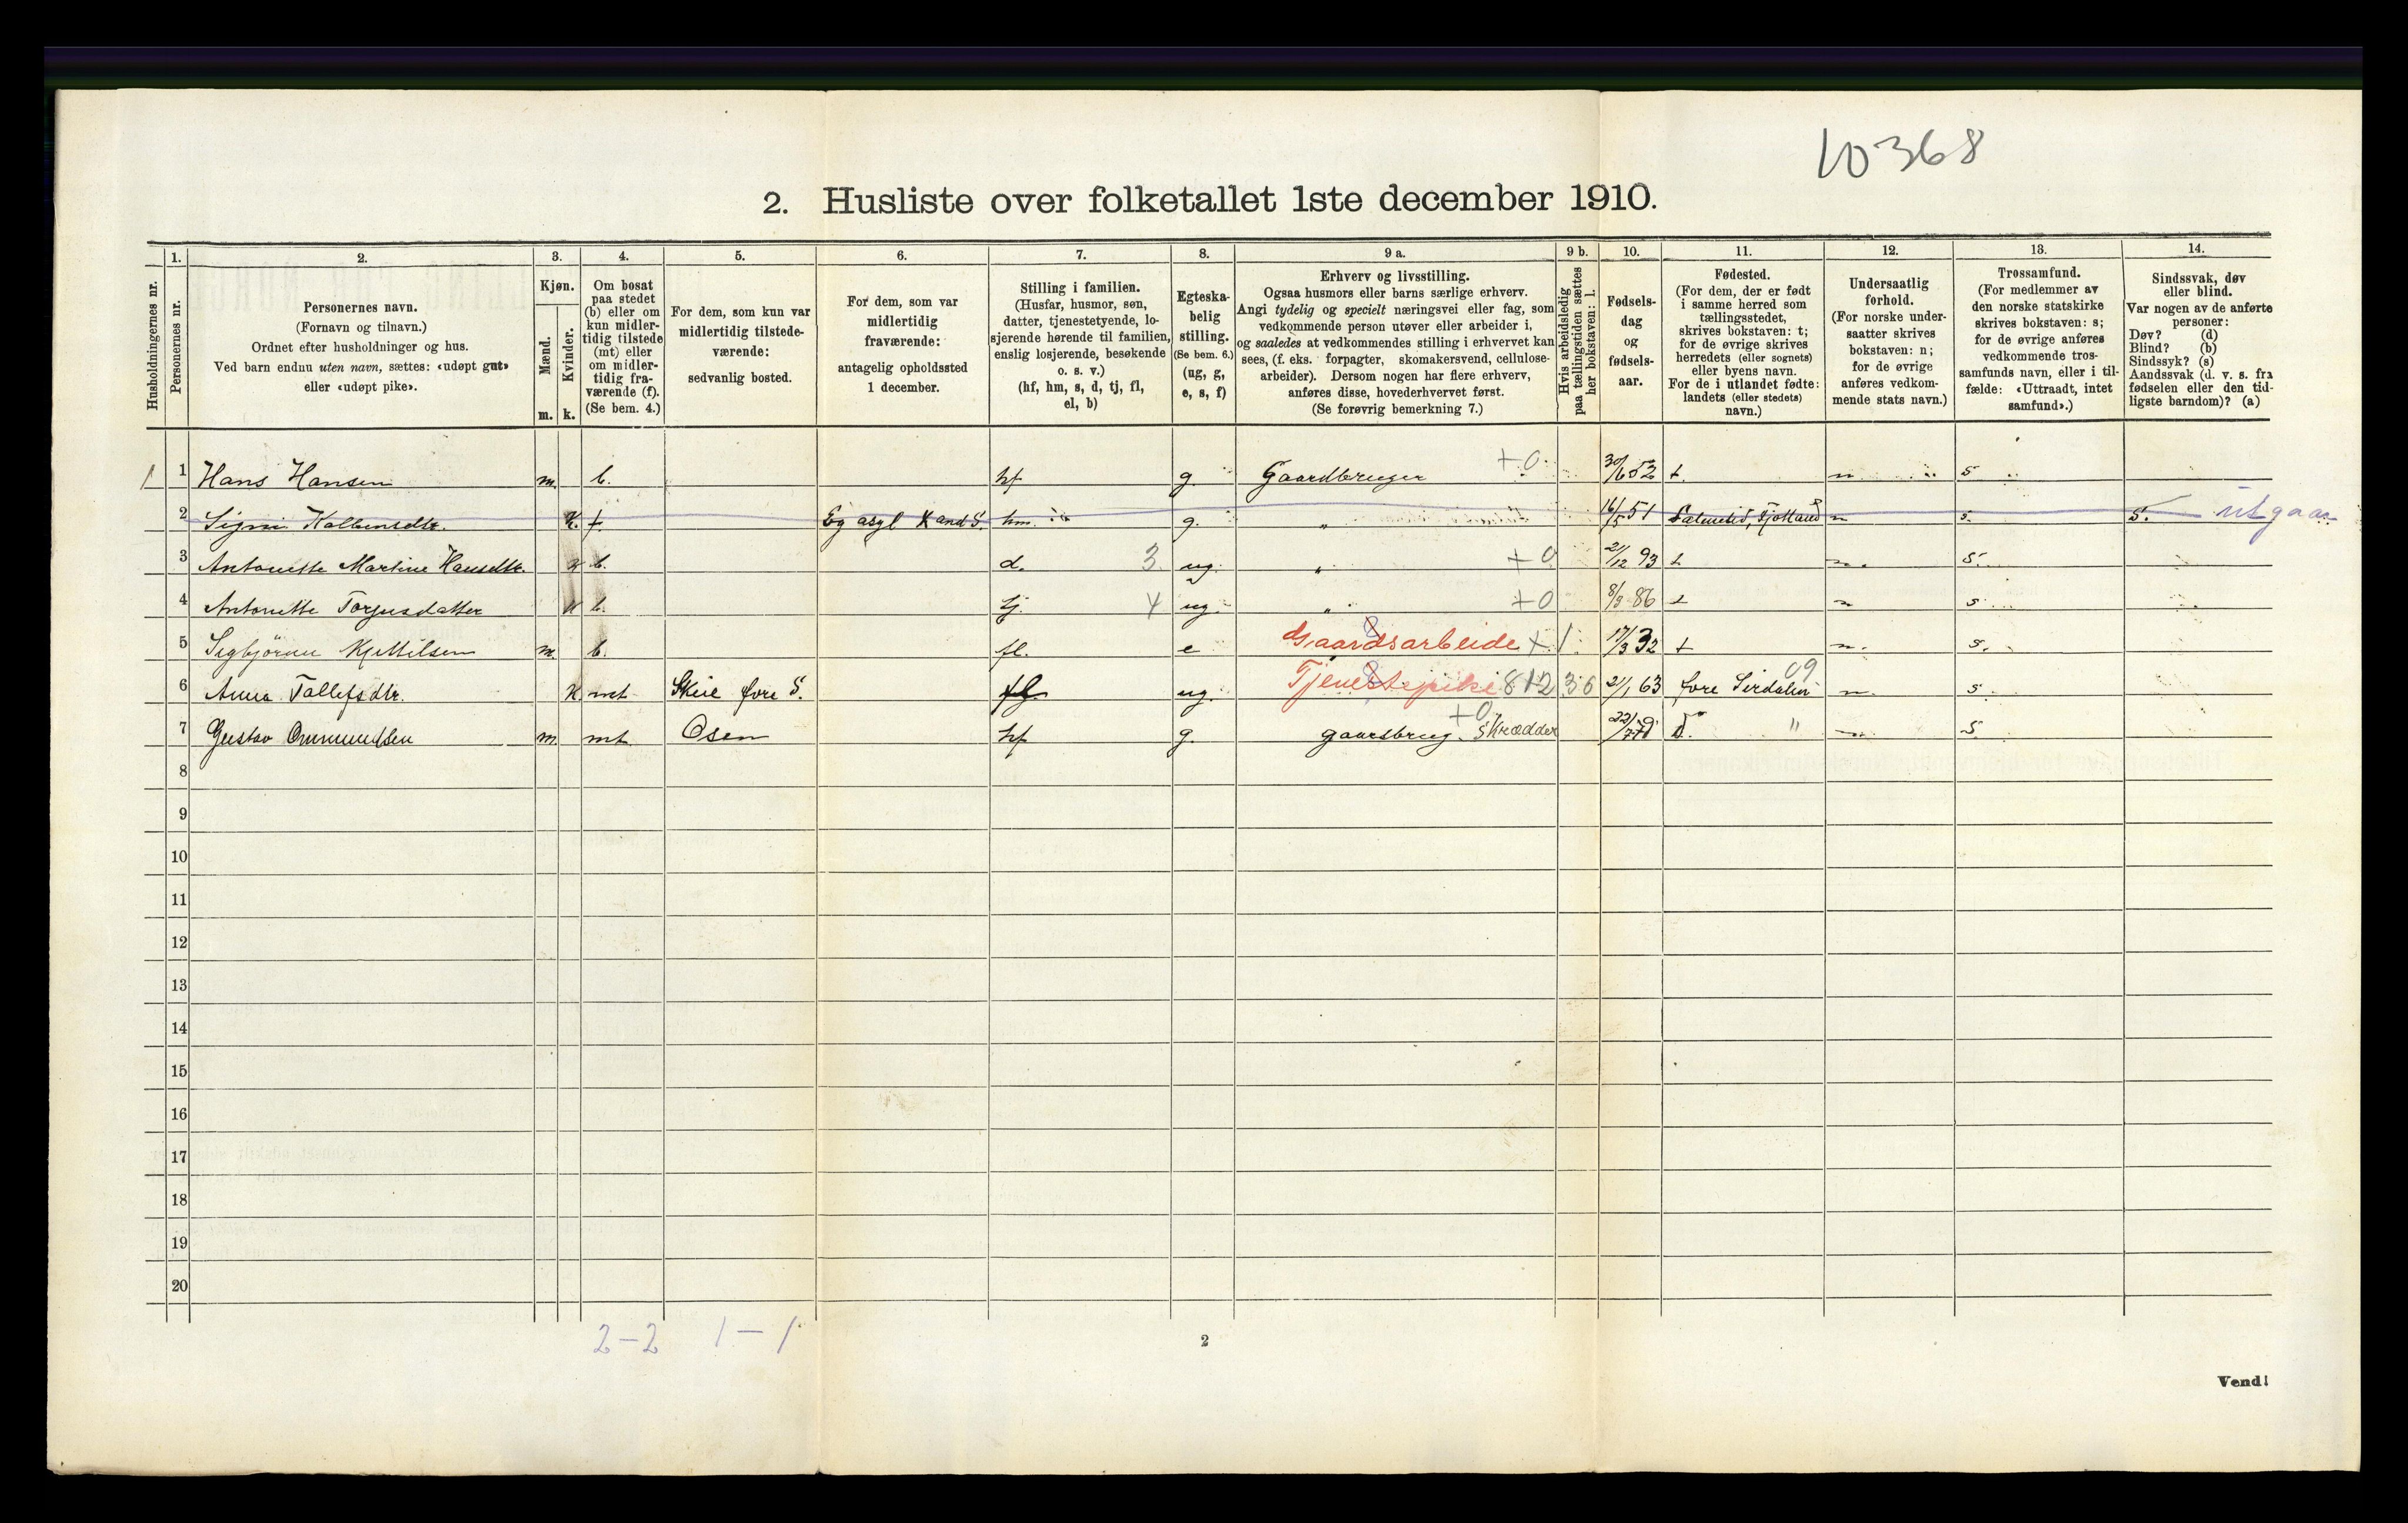 10368
2. Husliste over folketallet 1ste december 1910.
Husholdningernes nr.
1. Personernes nr.
2. Personernes navn.
(Fornavn og tilnavn.)
Ordnet efter husholdninger og hus.
Ved barn endnu uten navn, sættes: «udøpt gut»
eller «udøpt pike».
3. Kjøn.
Mænd. m.
Kvinder. k.
4. Om bosat
paa stedet
(b) eller om
kun midler-
tidig tilstede
(mt) eller
om midler-
tidig fra-
værende (f).
(Se bem. 4.)
5. For dem, som kun var
midlertidig tilstede-
værende:
sedvanlig bosted.
6. For dem, som var
midlertidig
fraværende:
antagelig opholdssted
1 december.
7. Stilling i familien.
(Husfar, husmor, søn,
datter, tjenestetyende, lo-
sjerende hørende til familien,
enslig losjerende, besøkende
o. s. v.)
(hf, hm, s, d, tj, fl,
el, b)
8. Egteska-
belig
stilling.
(Se bem. 6.)
(ug, g,
e, s, f)
9 a. Erhverv og livsstilling.
Ogsaa husmors eller barns særlige erhverv.
Angi tydelig og specielt næringsvei eller fag, som
vedkommende person utøver eller arbeider i,
og saaledes at vedkommendes stilling i erhvervet kan
sees, (f. eks. forpagter, skomakersvend, cellulose-
arbeider). Dersom nogen har flere erhverv,
anføres disse, hovederhvervet først.
(Se forøvrig bemerkning 7.)
9 b. Hvis arbeidsledig
paa tællingstiden sættes
her bokstaven: l.
10. Fødsels-
dag
og
fødsels-
aar.
11. Fødested.
(For dem, der er født
i samme herred som
tællingsstedet,
skrives bokstaven: t;
for de øvrige skrives
herredets (eller sognets)
eller byens navn.
For de i utlandet fødte:
landets (eller stedets)
navn.)
12. Undersaatlig
forhold.
(For norske under-
saatter skrives
bokstaven: n;
for de øvrige
anføres vedkom-
mende stats navn.)
13. Trossamfund.
(For medlemmer av
den norske statskirke
skrives bokstaven: s;
for de øvrige anføres
vedkommende tros-
samfunds navn, eller i til-
fælde: «Uttraadt, intet
samfund».)
14. Sindssvak, døv
eller blind.
Var nogen av de anførte
personer:
Døv? (d)
Blind? (b)
Sindssyk? (s)
Aandssvak (d. v. s. fra
fødselen eller den tid-
ligste barndom)? (a)
1 1 Hans Hansen m. b. hf g. Gaardbruger +0 30/6 52 t. n s
2 K. f Eg asyl Kand S. hm. g. " 16/5 51 n s. S. utgaar
3 Antonette Martine Hansdtr. k b. d. 3 ug. " +0 21/12 93 t n. s.
4 Antonette Torjusdatter k b. tj. 4 ug. " +0 8/9 86 t n s
5 Sigbjörnn Kjettilsen m. b. fl. e Gaardsarbeide + 1 17/3 32 t n. s.
6 Anna Tollefsdtr. K. mt Skeie fore S. fl ug. Tjenestepike 812 36 21/1 63 fore Sirdalen 09 n. s.
7 Gustav Ommundsen m. mt Osen hf g. gaarsbrug. Skrædder +0 " n s
8
9
10
11
12
13
14
15
16
17
18
19
20
2-2 1-1
2
Vend!